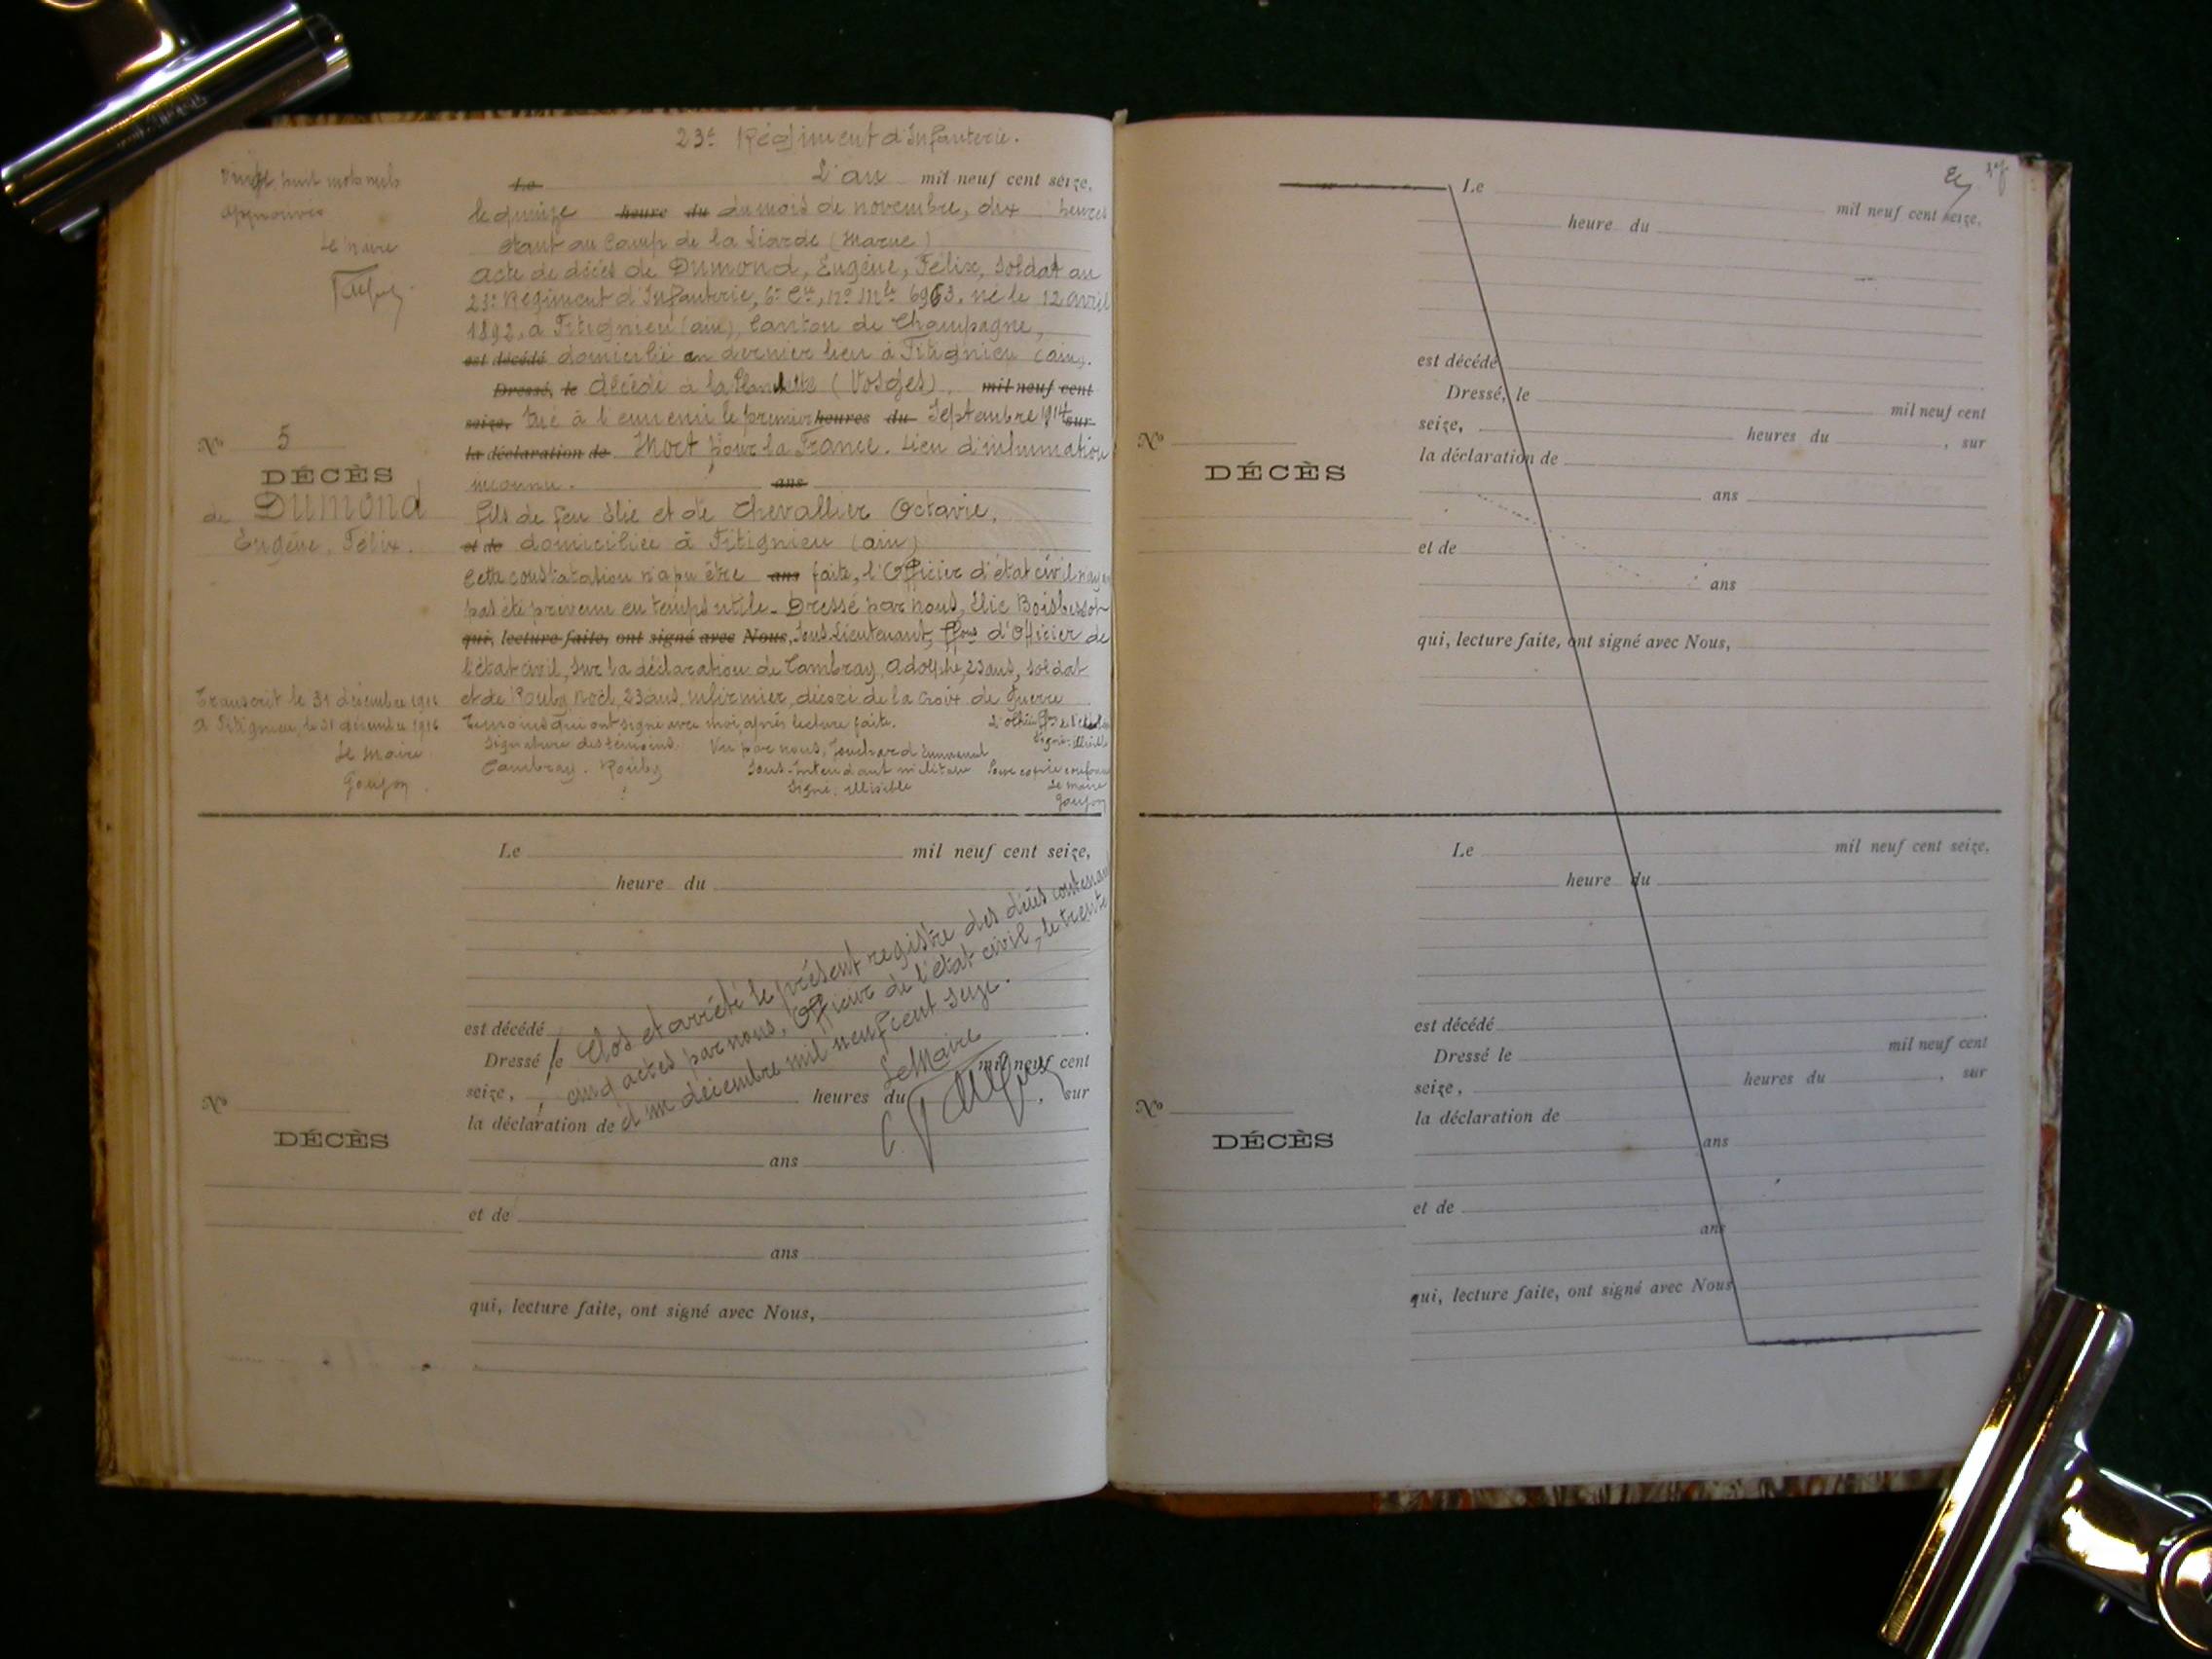 23e Régiment d'Infanterie.
Vingt huit mots nuls
approuvés
Le Maire
Le L'an mil neuf cent seize,
le quinze heure du du mois de novembre, dix heures
étant au Camp de la (Marne)
Acte de décès de Dumond, Eugène, Félix, Soldat au
23e Régiment d'Infanterie, 6e Cie, No Mle 6963, né le 12 avril
1892, à Fitignieu (ain), Canton de Champagne,
est décédé domicilié en dernier lieu à Fitignieu (ain).
Dressé, le décédé à la (Vosges) mil neuf cent
seize, tué à l'ennemi le premier heures du Septembre 1914 sur
la déclaration de Mort pour la France. Lieu d'inhumation
inconnu. ans
fils de feu Elie et de Chevallier Octavie,
et de domiciliée à Fitignieu (ain)
Cette constatation n'a pu être ans faite, l'Officier d'état civil n'ayant
pas été prévenu en temps utile. Dressé par nous, Elie
qui, lecture faite, ont signé avec Nous, Sous Lieutenant, ffons d'Officier de
l'état civil, sur la déclaration de Cambray, Adolphe, 23 ans, soldat
et de Rouby Noël, 23 ans, infirmier, décoré de la Croix de Guerre
Témoins qui ont signé avec moi, après lecture faite.
Signature des témoins. Vu par nous, Emmanuel
Cambray. Rouby Sous-Intendant militaire
Signé. illisible
L'officier
Signé: illisible
Pour copie conforme
Le Maire
Goujon
No 5
DÉCÈS
de Dumond
Eugène, Félix.
Transcrit le 31 décembre 1916
A Fitignieu, le 31 décembre 1916
Le Maire
Goujon.
No
DÉCÈS
Le mil neuf cent seize,
heure du
est décédé
Dressé le mil neuf cent
seize, heures du , sur
la déclaration de
ans
et de
ans
qui, lecture faite, ont signé avec Nous,
Clos et arrêté le présent registre des décès contenant
cinq actes par nous, Officier de l'état civil, le trente
et un décembre mil neuf cent seize.
Le Maire
Le mil neuf cent seize,
heure du
est décédé
Dressé, le mil neuf cent
seize, heures du , sur
No
DÉCÈS
la déclaration de
ans
et de
ans
qui, lecture faite, ont signé avec Nous,
Le mil neuf cent seize,
heure du
est décédé
Dressé le mil neuf cent
seize, heures du , sur
No
DÉCÈS
la déclaration de
ans
et de
ans
qui, lecture faite, ont signé avec Nous